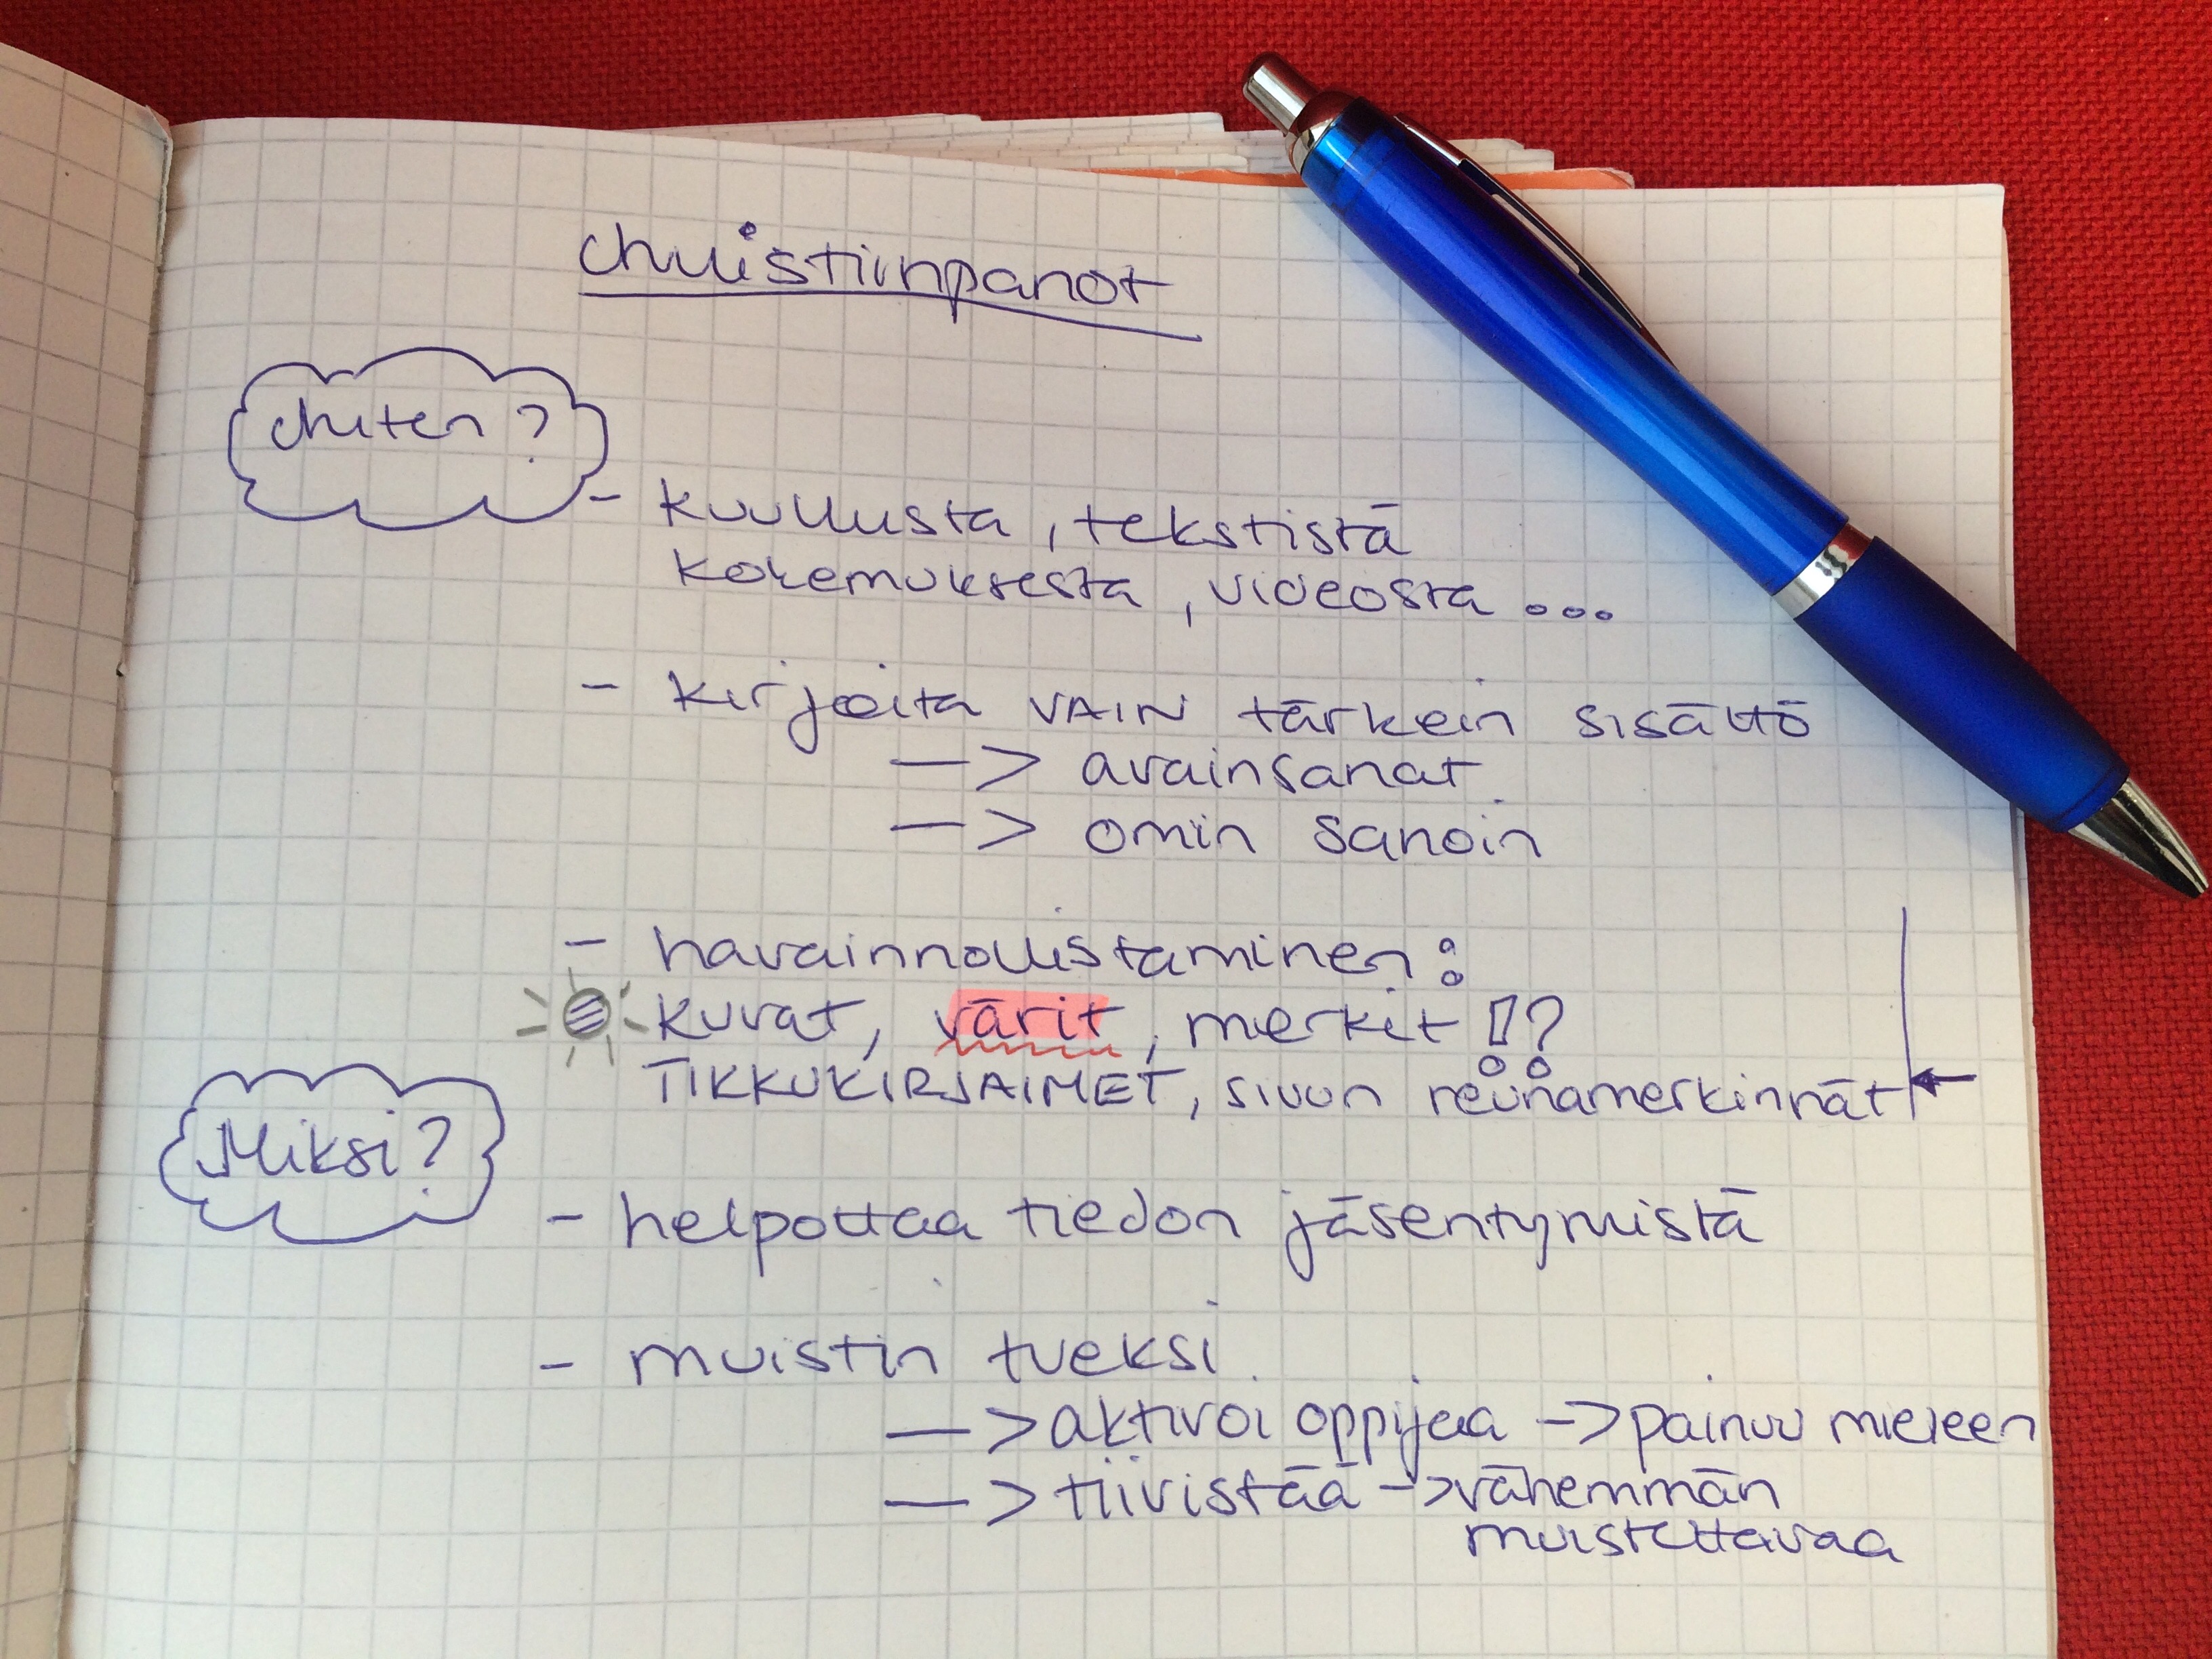 Muistiinpanot
Miten?
- kuullusta, tekstistä
kokemuksesta, videosta ...
- kirjoita VAIN tärkein sisältö
—> avainsanat
—> omin sanoin
- havainnollistaminen:
kuvat, värit, merkit !?
TIKKUKIRJAIMET, sivun reunamerkinnät
Miksi?
- helpottaa tiedon jäsentymistä
- muistin tueksi
—> aktivoi oppijaa —> painuu mieleen
—> tiivistää —> vähemmän
muistettavaa